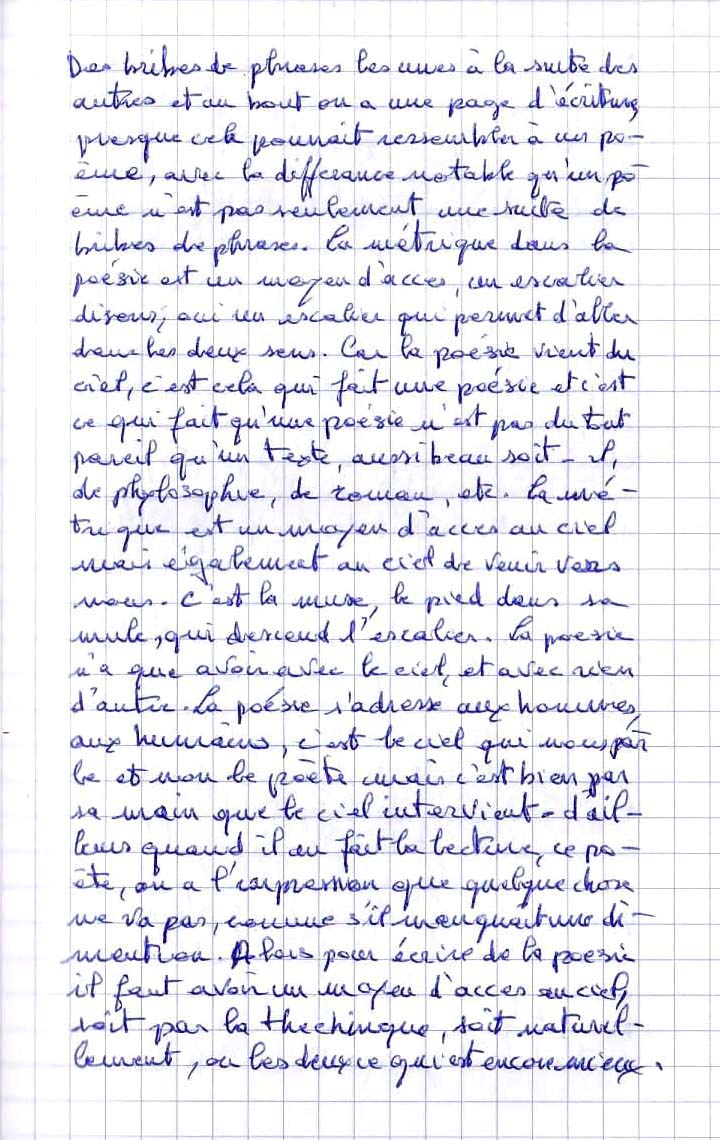 Des bribes de phrases les unes à la suite des
autres et au bout on a une page d'écriture,
presque cela pourrait ressembler à un po-
ème, avec la differance notable qu'un po-
ème n'est pas seulement une suite de
bribes de phrases. La métrique dans la
poésie est un moyen d'acces, un escalier
disons, oui un escalier qui permet d'aller
dans les deux sens. Car la poésie vient du
ciel, c'est cela qui fait une poésie et c'est
ce qui fait qu'une poésie n'est pas du tout
pareil qu'un texte, aussi beau soit-il,
de phylosophie, de roman, etc. La mé-
trique est un moyen d'acces au ciel
mais également au ciel de venir vers
nous. C'est la muse, le pied dans sa
mule, qui descend l'escalier. La poesie
n'a que avoir avec le ciel, et avec rien
d'autre. La poésie s'adresse aux hommes,
aux humains, c'est le ciel qui nous par
le et non le poète mais c'est bien par
sa main que le ciel intervient. d'ail-
leurs quand il en fait la lecture, ce po-
ète, on a l'impression que quelque chose
ne va pas, comme s'il manquait une di-
mention. Alors pour écrire de la poesie
il faut avoir un moyen d'acces au ciel,
soit par la thechinque, soit naturel-
lement, ou les deux ce qui est encore mieux.